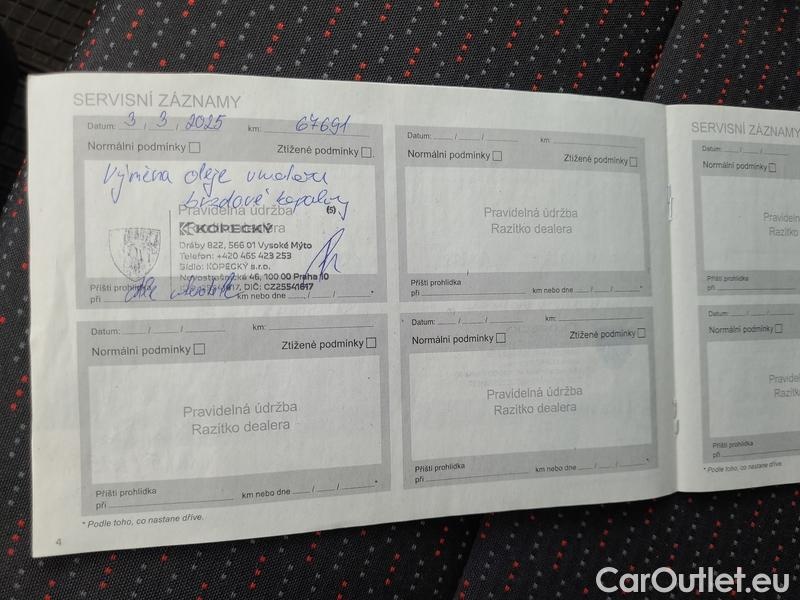 SERVISNÍ ZÁZNAMY
Datum: 3 / 3 / 2025 km: 67691
Normální podmínky Ztížené podmínky
Výměna oleje
brzdové kapaliny
Pravidelná údržba (5)
Razítko dealera
KOPECKÝ
Dráby 822, 566 01 Vysoké Mýto
Telefon: +420 465 423 253
Sídlo: KOPECKÝ s.r.o.
Novostrašnická 46, 100 00 Praha 10
DIČ: CZ25541617
Příští prohlídka
při km nebo dne / / *
Datum: / / km:
Normální podmínky Ztížené podmínky
Pravidelná údržba
Razítko dealera
Příští prohlídka
při km nebo dne / / *
Datum: / / km:
Normální podmínky Ztížené podmínky
Pravidelná údržba
Razítko dealera
Příští prohlídka
při km nebo dne / / *
Datum: / / km:
Normální podmínky Ztížené podmínky
Pravidelná údržba
Razítko dealera
Příští prohlídka
při km nebo dne / / *
* Podle toho, co nastane dříve.
4
SERVISNÍ ZÁZNAMY
Datum: / /
Normální podmínky
Příští prohlídka
při
Datum: / /
Normální podmínky
Příští prohlídka
při
* Podle toho, co nastane dříve.
CarOutlet.eu